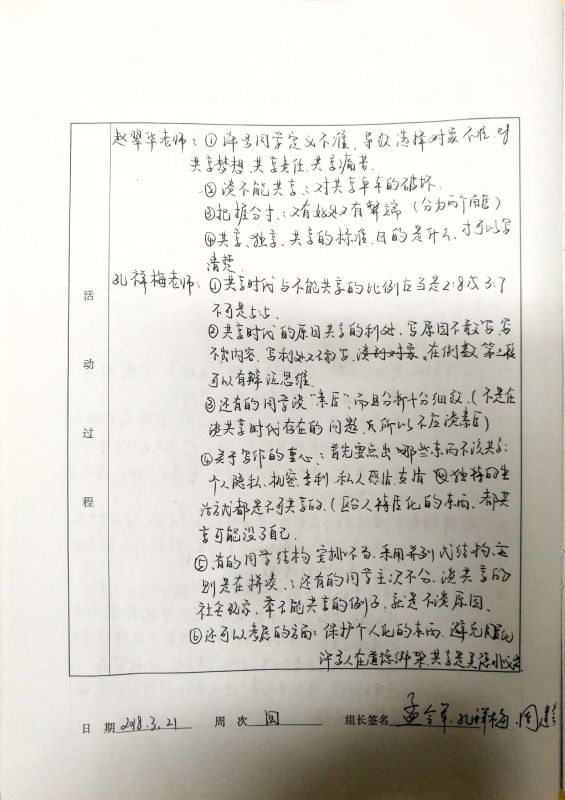 活动过程
赵翠华老师：①许多同学定义不准，导致选择对象不准。
共享梦想、共享责任、共享痛苦
②谈不能共享：对共享单车的破坏.
③把握分寸：又有好处又有弊端（分为两个角度）
④共享、独享、共享的标准、目的是什么，才可以写
清楚.
孔祥梅老师：①共享时代与不能共享的比例应当是2:8或3:7
不可是5:5.
②共享时代的原因共享的利处，写原因不敢写，写
内容，写利处又不敢写，在倒数第二段
可以有辩证思维.
③还有的同学谈“素质”，而且分析十分细致.（不是在
谈共享时代存在的问题，所以不应谈素质）
④关于写作的重心：首先要点出哪些东西不该共享：
个人隐私、机密、专利、私人感情、友情 独特的生
活方式都是不可共享的.（区分人特质化的东西，都共
享可能没了自己.
⑤有的同学结构安排不当，采用并列式结构，实
则是在拼凑.：还有的同学主次不分，谈共享的
社会现象，举不能共享的例子，就是不谈原因.
⑥还可以考虑的方面：保护个人化的东西，避免
许多人在道德绑架，共享是美德
日 期 2018.3.21 周 次 四 组长签名 孔祥梅